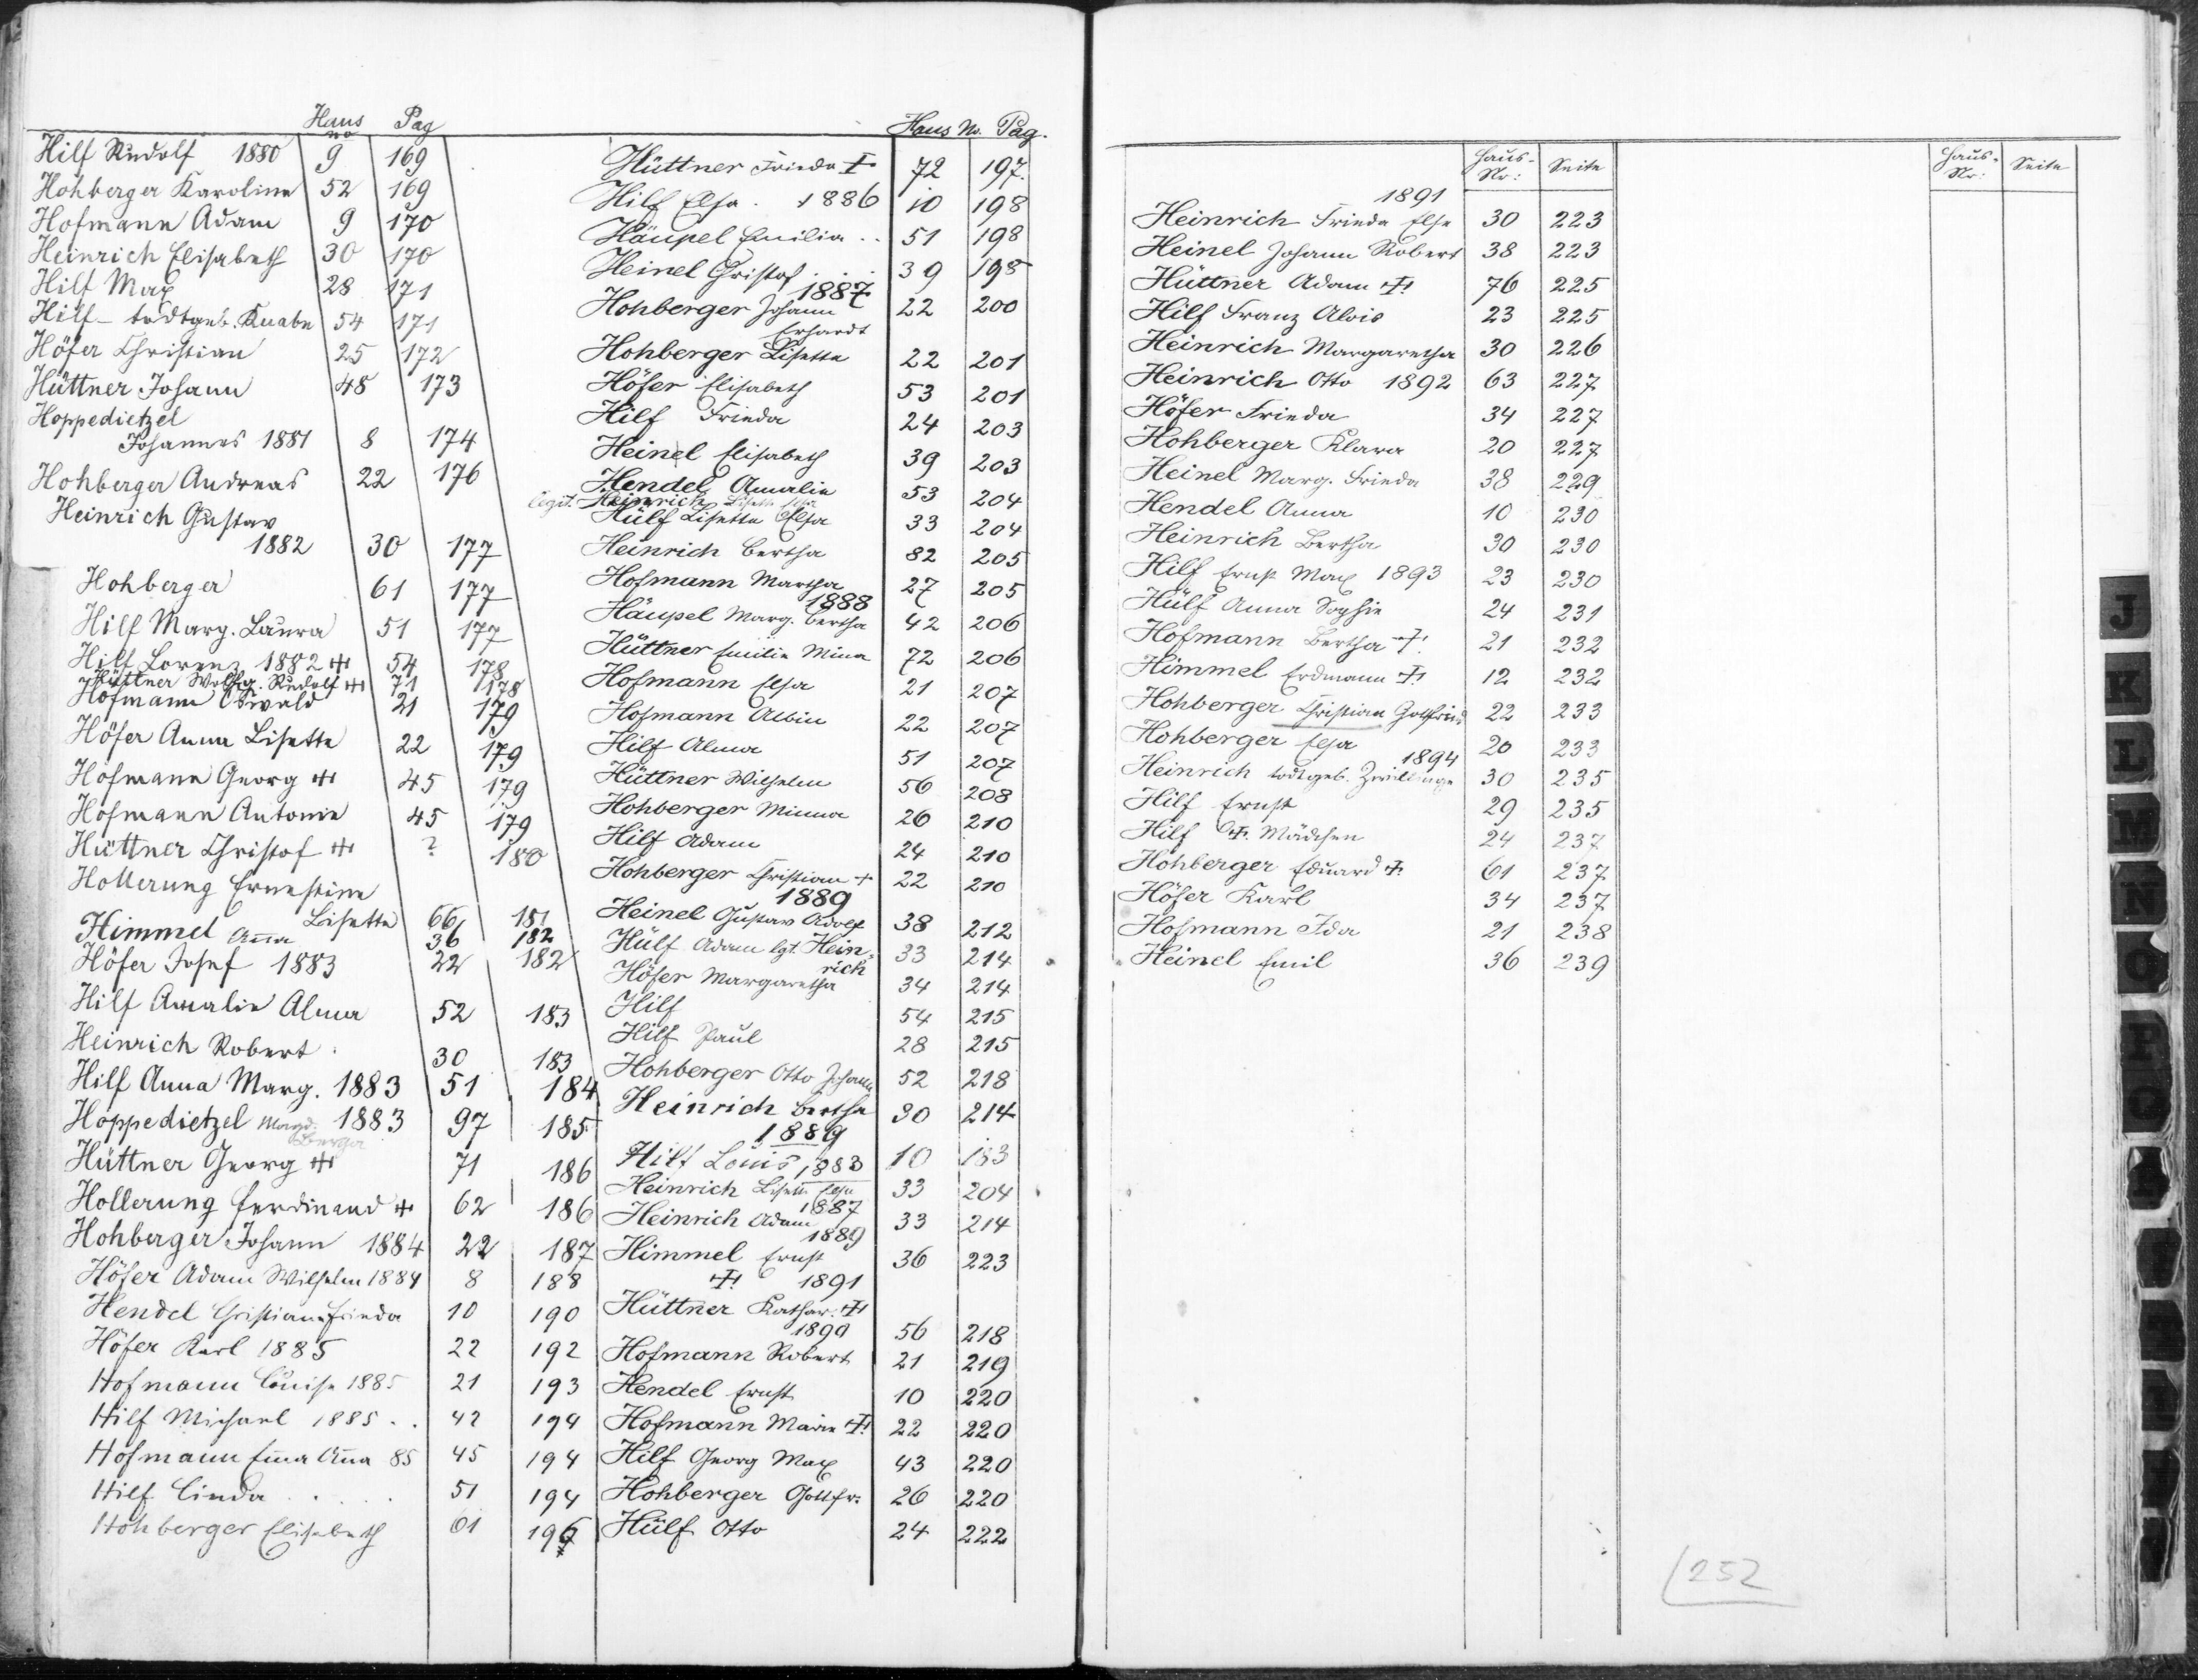 Haus No Pag
Hilf Rudolf 1880 9 169
Hohberger Karoline 52 169
Hofmann Adam 9 170
Heinrich Elisabeth 30 170
Hilf Max 28 171
Hilf - todtgeb. Knabe 54 171
Höfer Christian 25 172
Hüttner Johann 48 173
Hoppedietzel
Johannes 1881 8 174
Hohberger Andreas 22 176
Heinrich Gustav
1882 30 177
Hohberger 61 177
Hilf Marg. Laura 51 177
Hilf Lorenz 1882 ++ 54 178
Hüttner Wolfg. Rudolf ++ 71 178
Hofmann Oswald 21 179
Höfer Anna Lisette 22 179
Hofmann Georg ++ 45 179
Hofmann Antonie 45 179
Hüttner Christof ++ ? 180
Hollerung Ernestine
Lisette 66 181
Himmel Ana 36 182
Höfer Josef 1883 22 182
Hilf Amalie Alma 52 183
Heinrich Robert 30 183
Hilf Anna Marg. 1883 51 184
Hoppedietzel Magd. 1883 97 185
Hüttner Georg ++ 71 186
Hollerung Ferdinand ++ 62 186
Hohberger Johann 1884 22 187
Höfer Adam Wilhelm 1884 8 188
Hendel Christiane Frieda 10 190
Höfer Karl 1885 22 192
Hofmann Louise 1885 21 193
Hilf Michael 1885 . . 42 194
Hofmann Ema Ana 85 45 194
Hilf Linda . . . . 51 194
Hohberger Elisabeth 61 196
Haus No. Pag.
Hüttner Frieda + 72 197.
Hilf Elsa . 1886 10 198
Häupel Emilie . . 51 198
Heinel Christof . . . 39 198
1887
Hohberger Johann 22 200
Erhardt
Hohberger Lisette 22 201
Höfer Elisabeth 53 201
Hilf Frieda 24 203
Heinel Elisabeth 39 203
Hendel Amalie 53 204
legit. Heinrich Lisette Elsa
Hülf Lisette Elsa 33 204
Heinrich Bertha 82 205
Hofmann Martha 27 205
1888
Häupel Marg. Bertha 42 206
Hüttner Emilie Mina 72 206
Hofmann Elsa 21 207
Hofmann Albin 22 207
Hilf Alma 51 207
Hüttner Wilhelm 56 208
Hohberger Minna 26 210
Hilf Adam 24 210
Hohberger Christian + 22 210
1889
Heinel Gustav Adolf 38 212
Hülf Adam lgt. Hein- 33 214
rich
Höfer Margaretha 34 214
Hilf 54 215
Hilf Paul 28 215
Hohberger Otto Johann 52 218
Heinrich Bertha 30 214
1889
Hilf Louis 1883 10 183
Heinrich Lisette Elsa 33 204
1887
Heinrich Adam 33 214
1889
Himmel Ernst 36 223
+ 1891
Hüttner Kathar. +
1890 56 218
Hofmann Robert 21 219
Hendel Ernst 10 220
Hofmann Marie + 22 220
Hilf Georg Max 43 220
Hohberger Gottfr. 26 220
Hülf Otto 24 222
Haus-Nr: Seite
1891
Heinrich Frieda Else 30 223
Heinel Johann Robert 38 223
Hüttner Adam + 76 225
Hilf Franz Alois 23 225
Heinrich Margaretha 30 226
Heinrich Otto 1892 63 227
Höfer Frieda 34 227
Hohberger Klara 20 227
Heinel Marg. Frieda 38 229
Hendel Anna 10 230
Heinrich Bertha 30 230
Hilf Ernst Max 1893 23 230
Hülf Anna Sophie 24 231
Hofmann Bertha + 21 232
Himmel Erdmann + 12 232
Hohberger Christian Gottfried 22 233
Hohberger Elsa 20 233
1894
Heinrich todtgeb. Zwillinge 30 235
Hilf Ernst 29 235
Hilf + Mädchen 24 237
Hohberger Eduard + 61 237
Höfer Karl 34 237
Hofmann Ida 21 238
Heinel Emil 36 239
Haus-Nr: Seite
252
J
K
L
M
N
O
P